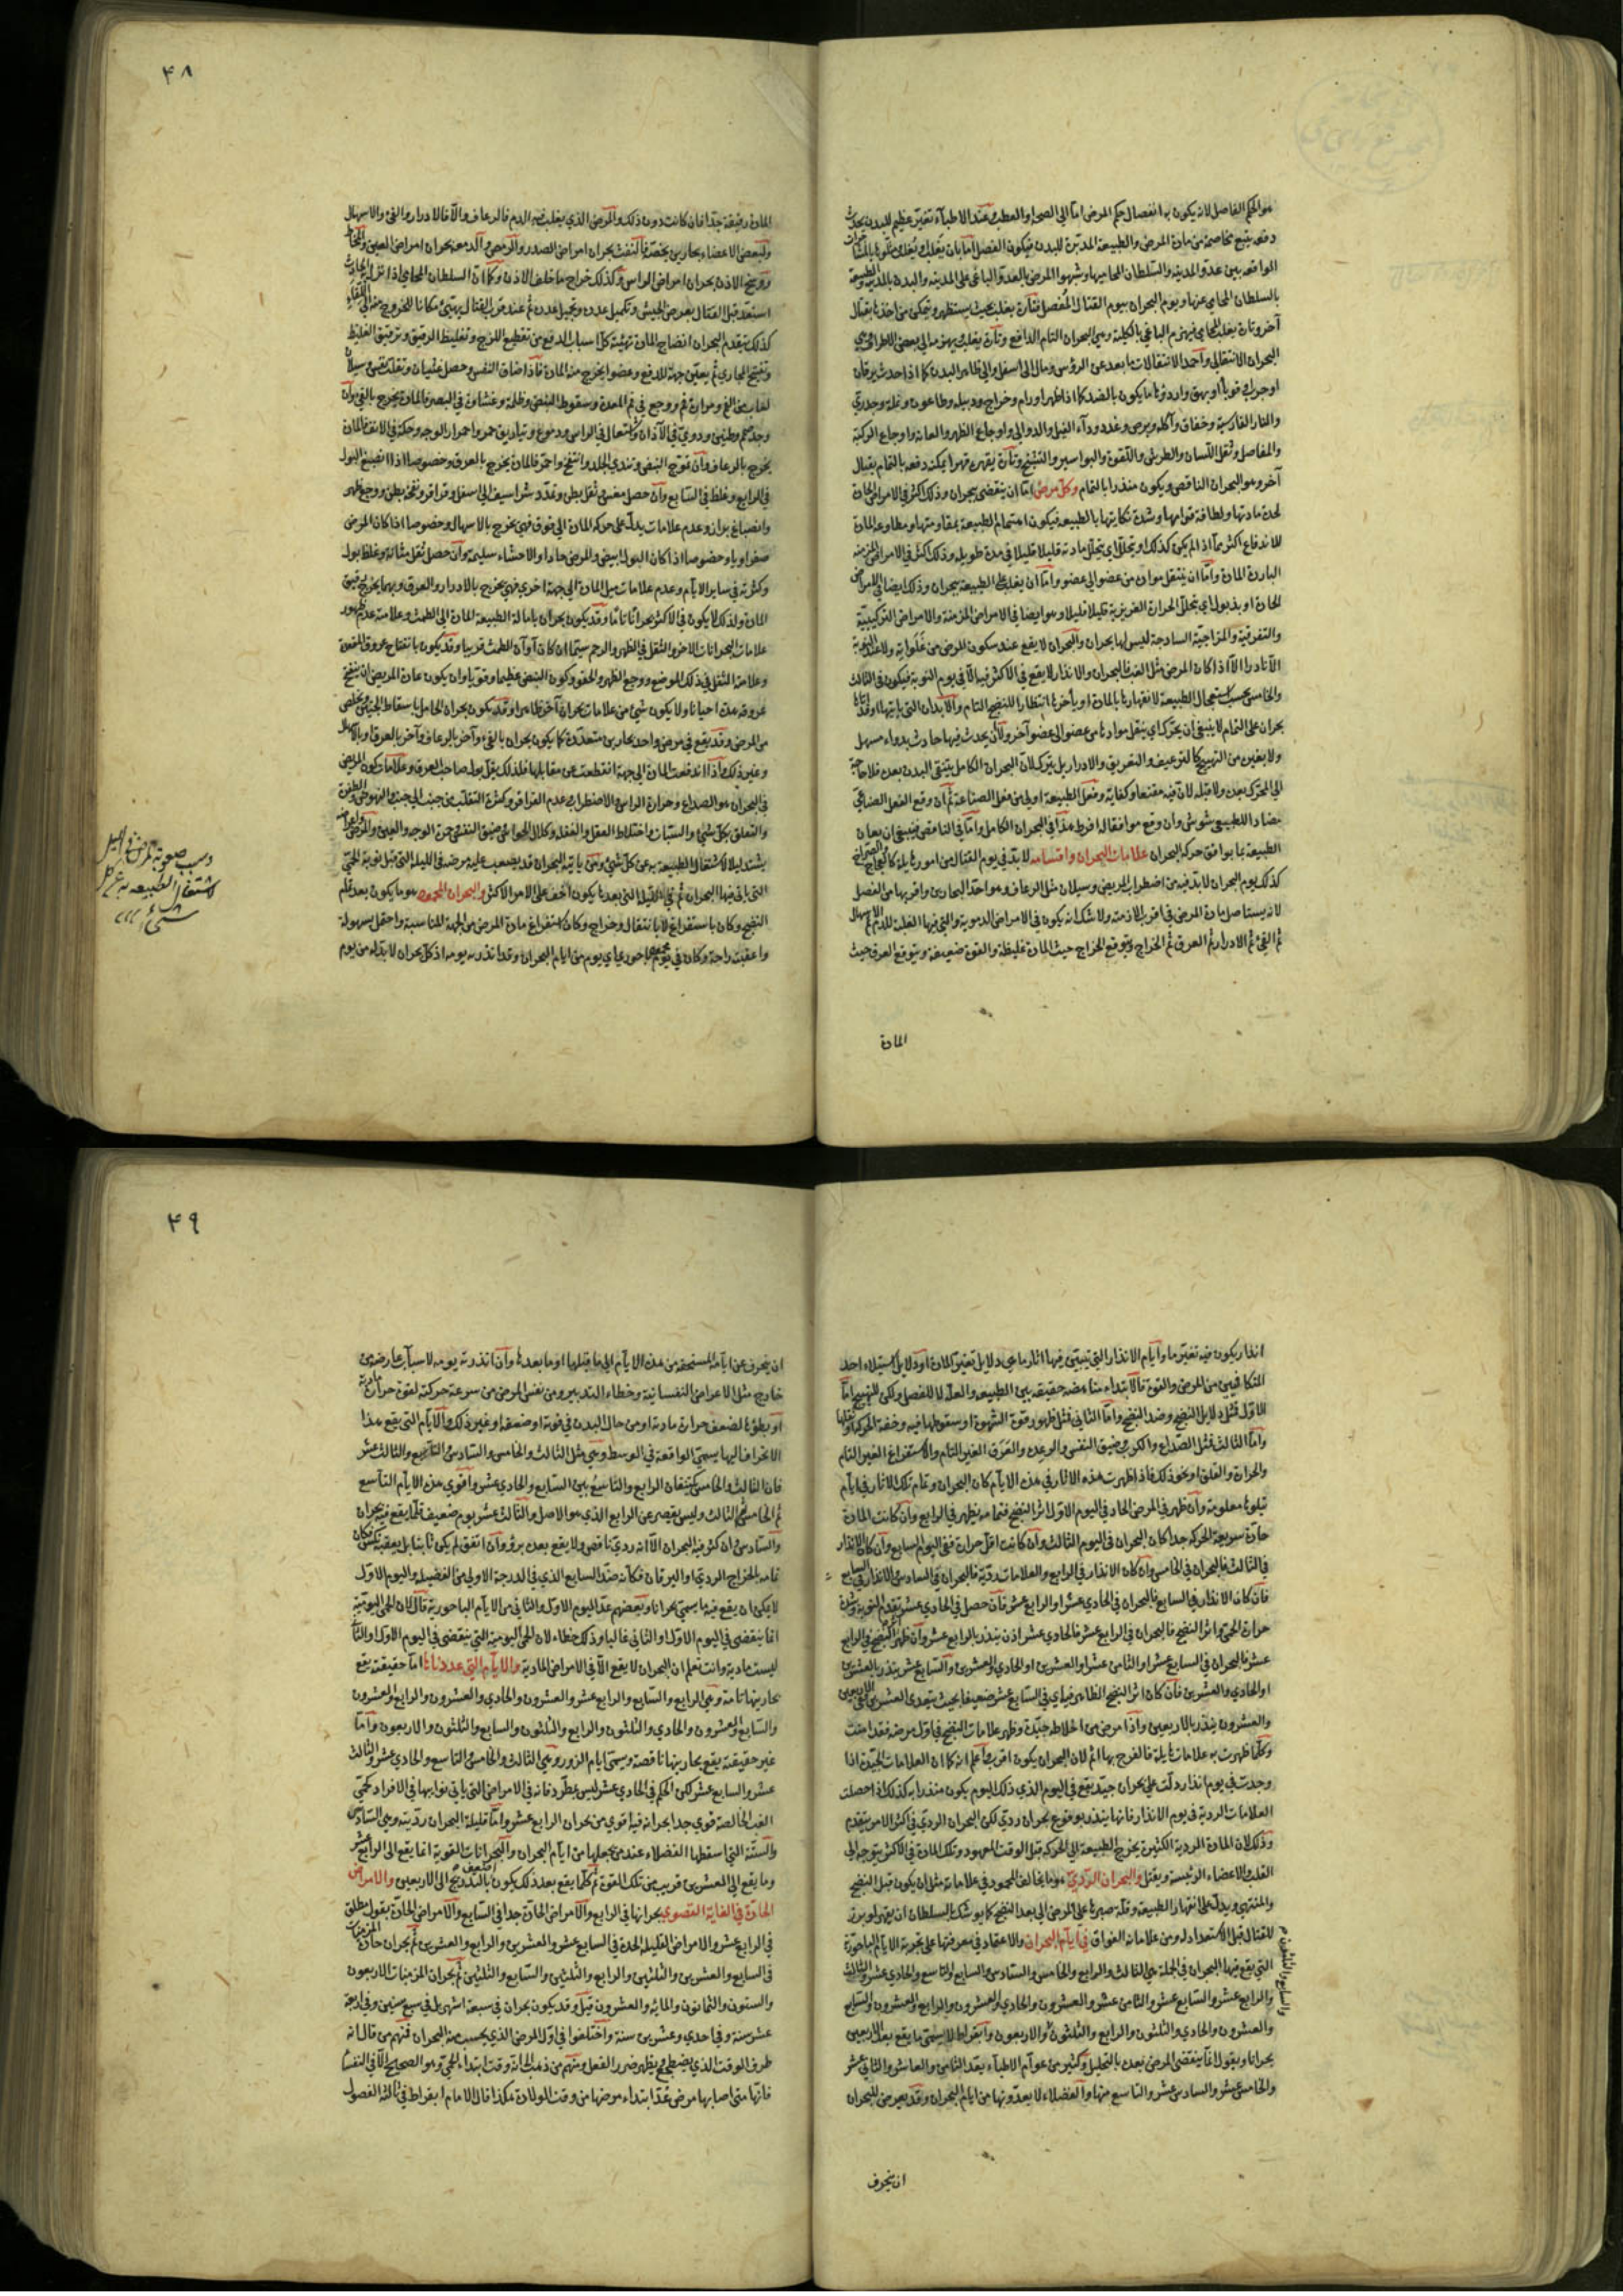 هو الحكم الفاصل لانه يكون به انفصال حكم المرض اما الى الصحة او العطب وعند الاطباء تغير عظيم للبدن يحدث
دفعه يتبع مخاصمة من مادة المرض والطبيعة المدبرة للبدن فيكون الفصل اما بان يَغلِب او يُغلَب
الواقعه بين عدو المدينه والسلطان الحامي لها وشبهوا المرض بالعدو الباغي على المدينه والبدن بالمدينه والطبيعة
بالسلطان الحامي عنها ويوم البحران بيوم القتال المُفصل فتارة يغلب بحيث يستظهر ويتمكن من اخذها بقتال
آخر وتارة يغلب الحامي فيهزم الباغي بالكلية وهي البحران التام الدافع وتارة يغلب بهزمه الى بعض الاطراف وهي
البحران الانتقالي واحمد الانتقالات ما بعد عن الرؤس ومال الى أسفل والى ظاهر البدن كما اذا حدث يرقان
او جرب او قوبا او بهق واردؤها ما يكون بالضد كما اذا ظهر اورام وخراج ودبيله وطاعون ونملة وجدري
والنار الفارسية وخناق وآكله وبرص وغدد وداء الفيل والدوالى واوجاع الظهر والعانة واوجاع الركبة
والمفاصل وثقل اللسان والطرش واللقوة والبواسير والتشنج وتارة يقهره قهرا يمكنه دفعه بالتمام بقتال
آخر وهو البحران الناقص ويكون منذرا بالتمام وكل مرض اما ان ينقضى ببحران وذلك اكثره في الامراض الحادة
لحدة مادتها ولطافة قوامها وشدة نكايتها بالطبيعه فيكون اهتمام الطبيعة بمقاومتها ومطاوعة المادة
للاندفاع اكثر مما اذا لم يكن كذلك او بتحلل اى يتحلل مادته قليلا قليلا في مدة طويله وذلك اكثره في الامراض المزمنة
البارده المادة واما ان ينتقل مواده من عضو الى عضو واما ان يغلب على الطبيعة ببحران وذلك ايضا في الامراض
الحادة او بذبول اي بتحلل الحرارة الغريزية قليلا قليلا وهو ايضا في الامراض المزمنة والامراض التركيبية
والتفرقية والمزاجية الساذجة ليس لها بحران والبحران لا يقع عند سكون المرض من غلوائه ولا عند النوبة
الا نادرا الا اذا كان المرض مثل الغب فالبحران والانذار لا يقع في الاكثر فيها الا في يوم النوبة فيكون في الثالث
والخامس بحسب استعجال الطبيعة لانقهارها بالمادة او بأخرة انتظارا للنضج التام والابدان التى ياتيها او قد اتاها
بحران على التمام لا ينبغي ان يحرك اي ينقل موادها من عضو الى عضو آخر ولا ان يحدث فيها حادث بدواء مسهل
ولا بغيره من التهييج كالترعيف والتعريق والادرار بل يترك لان البحران الكامل ينقى البدن بعده فلا حاجة
الى المحرك بعده ولا قبله لان فيه مقنعا وكفاية وفعل الطبيعة اولى من فعل الصناعة ثم ان وقع الفعل الصناعي
مضادا للطبيعي شوش وان وقع موافقا له افرط هذا في البحران الكامل واما في الناقص فينبغي ان يعان
الطبيعة بما يوافق حركة البحران علامات البحران واقسامه لا بد في يوم القتال من امور هايلة كالعجاج والصراخ
كذلك يوم البحران لا بد فيه من اضطراب المريض وسيلان مثل الرعاف وهو احد البحارين واقربها من الفصل
لانه يستاصل مادة المرض في اقرب الازمنه ولا شك انه يكون في الامراض الدموية والتي فيها الغلبة للدم ثم الاسهال
ثم القيء ثم الادرار ثم العرق ثم الخراج ويتوقع الخراج حيث المادة غليظة والقوة ضعيفة ويتوقع العرق حيث
المادة
۴۸
المادة رقيقة جدا فان كانت دون ذلك والمرض الذي يغلب فيه الدم فالرعاف والا فالادرار والقيء والاسهال
ولبعض الاعضاء بحارين يخصها فالنفث بحران امراض الصدر والرمص والدمعة بحران امراض العين والمخاط
ووسخ الاذن بحران امراض الراس وكذلك خراج ما خلف الاذن وكما ان السلطان الحامي اذا
استعد قبل القتال بعرض الجيش وتكميل عدده وتجميل عدده ثم عند قرب القتال يهيئ مكانا للخروج منه الى اللقاء
كذلك يتقدم البحران انضاج المادة تهيئة كل اسباب الدفع من تقطيع اللزج وتغليظ الرقيق وترقيق الغليظ
وتفتيح المجاري ثم يعين جهة للدفع وعضوا يخرج منه المادة فاذا ضاق النفس وحصل غثيان وتقلب نفس وسيلان
لعاب من الفم ومرارة فم ووجع في فم المعدة وسقوط النبض وظلمة وغشاوة في البصر فالمادة يخرج بالقيء وان
وجد صمم وطنين ودوي في الآذان واشتعال في الراس ودموع وتباريق حمر واحمرار الوجه وحكة في الانف فالمادة
يخرج بالرعاف وان تموج النبض وتندي الجلد وانتفخ واحمر فالمادة يخرج بالعرق وخصوصا اذا انصبغ البول
في الرابع وغلظ في السابع وان حصل مغص وثقل بطن وتمدد شراسيف الى اسفل وقراقر ونفخ بطن ووجع ظهر
وانصباغ براز وعدم علامات يدل على حركة المادة الى فوق فهي يخرج بالاسهال وخصوصا اذا كان المرض
صفراويا وخصوصا اذا كان البول ابيض والمرض حادا والاحشاء سليمة وان حصل ثقل مثانه وغلظ بول
وكثرته في ساير الايام وعدم علامات ميل المادة الى جهة اخرى فهي يخرج بالادرار والعرق وبهما يخرج رقيق
المادة ولذلك لا يكون في الاكثر بحرانا تاما وقد يكون بحران بامالة الطبيعة المادة الى الطمث وعلامته عدم ظهور
علامات البحرانات الاخر والثقل في الظهر والرحم سيما ان كان آوان الطمث قريبا وقد يكون بانتفاخ عروق المقعدة
وعلامته الثقل في ذلك الموضع ووجع الظهر والحقو وكون النبض عظيما وقويا وان يكون عادة المريض ان ينفتح
عروقه هذه احيانا ولا يكون شئ من علامات بحران آخر ظاهرا وقد يكون بحران الحامل باسقاط الجنين ويخلص
من المرض وقد يقع في مرض واحد بحارين متعددة كما يكون بحران بالقيء وآخر بالرعاف وآخر بالعرق او بالاسهال
وغير ذلك واذا اندفعت المادة الى جهة انقطعت عن مقابلها فلذلك يقل بول صاحب العرق وعلامات كون المريض
في البحران هو الصداع وحرارة الراس والاضطراب عدم القرار وكثرة التقلب من جنب الى جنب والنهوض والطفرة
والتعلق بكل شئ والسبات واختلاط العقل والغفلة وكلال الحواس وضيق النفس وحمرة الوجه والعين والمرض
يشتد ليلا لاشتغال الطبيعة به عن كل شئ ومن ياتيه البحران قد يصعب عليه مرضه في الليلة التي قبل نوبة الحمى
التى ياتي فيها البحران ثم في الليلة التي بعدها يكون اخف على الامر الاكثر والبحران المحمود هو ما يكون بعد تمام
النضج وكان باستفراغ لا بانتقال وخراج وكان استفراغ مادة المرض من الجهة المناسبة واحتمل بسهولة
واعقب راحة وكان في يوم باحوري اي يوم من ايام البحران وقد انذر به يومه اذ كل بحران لا بد له من يوم
وسبب صعوبة المرض في الليل
لاشتغال الطبيعه به عن كل
شئ
انذار يكون فيه تغير ما وايام الانذار التي يتبين فيها اثار ما هي دلايل تغير المادة او دلايل استيلاء احد
المتكافيين من المرض والقوة فالابتداء مناهضة حقيقه بين الطبيعه والعلة لا للفصل ولكن للتهييج اما
الاول فمثل دلايل النضج وضد النضج واما الثانى فمثل ظهور قوة الشهوة او سقوطها فيه وخفة الحركة او ثقلها
واما الثالث فمثل الصداع والكرب وضيق النفس والرعدة والعَرَق الغير التام والاستفراغ الغير التام
والحرارة والقلق او نحو ذلك فاذا ظهرت هذه الاثار في هذه الايام كان البحران وتمام تلك الاثار في ايام
تيلوها معلومة وان ظهر في المرض الحاد في اليوم الاول اثر النضج فتمامه يظهر في الرابع وان كانت المادة
حادة سريعة الحركة جدا كان البحران في اليوم الثالث وان كانت اقل حرارة ففي اليوم السابع وان كان الانذار
في الثالث فالبحران في الخامس وان كان الانذار في الرابع والعلامات رديّة فالبحران في السادس والانذار في السابع
فان كان الانذار في السابع فالبحران في الحادي عشر او الرابع عشر فان حصل في الحادي عشر تقدم النوبة وشدة
حرارة الحمى واثر النضج فالبحران في الرابع عشر فالحادي عشر اذن ينذر بالرابع عشر وان ظهر النضج في الرابع
عشر فالبحران في السابع عشر او الثامن عشر او العشرين او الحادي والعشرين والسابع عشر ينذر بالعشرين
او الحادي والعشرين فان كان اثر النضج الظاهر في السابع عشر ضعيفا بحيث يتعدى العشرين الى الاربعين
والعشرون ينذر بالاربعين واذا مرض من اخلاطه جيدة وظهر علامات النضج في اول مرضه فقد امنت
وكلما ظهرت به علامات هايلة فالفرح بها اتم لان البحران يكون اقرب واعلم انه كما ان العلامات الجيدة اذا
وجدت في يوم انذار دلت على بحران جيد يقع في اليوم الذي ذلك اليوم يكون منذرا به كذلك اذا حصلت
العلامات الردية في يوم الانذار فانها ينذر بوقوع بحران ردي لكن البحران الردي في اكثر الامر يتقدم
وذلك لان المادة الردية الكثيرة يخرج الطبيعة الى الحركة قبل الوقت المعهود وتلك المادة في الاكثر يتوجه الى
القلب والاعضاء الرئيسة ويقتل والبحران الردي هو ما يخالف المحمود في علاماته مثل ان يكون قبل النضج
والمنتهي ويدل على انقهار الطبيعة وقلة صبرها على المرض الى بعد النضج كما يوشك السلطان ان يقهر لو برز
للقتال قبل الاستعداد له ومن علاماته الفواق في ايام البحران والاعتماد في معرفتها على تجربة الايام الباحورية
التي يقع فيها البحران في الجملة هي الثالث والرابع والخامس والسادس والسابع والتاسع والحادي عشر والثالث
والرابع عشر والسابع عشر والثامن عشر والعشرون والحادي والعشرون والرابع والعشرون والسابع
والعشرون والحادي والثلثون والرابع والثلثون والاربعون وابقراط لا يسمى ما يقع بعد الاربعين
بحرانا ويقول انما ينقضى المرض بعده بالتحليل وكثير من عوام الاطباء يعد الثامن والعاشر والثانى عشر
والخامس عشر والسادس عشر والتاسع منها والفضلاء لا يعدونها من ايام البحران وقد يعرض للبحران
والسابع والثلثون
ان ينحرف
۴۹
ان ينحرف عن ايامه المستحقه من هذه الايام الى ما قبلها او ما بعدها وان انذر به يومه لاسباب عارضه من
خارج مثل الاعراض النفسانية وخطاء التدبير ومن نفس المرض من سرعة حركته لقوة حرارة مادته
او بطؤها لضعف حرارة مادته او من حال البدن في قوته او ضعفه او غير ذلك والايام التي يقع هذا
الانحراف اليها يسمى الواقعة في الوسط وهي مثل الثالث والخامس والسادس والتاسع والثالث عشر
فان الثالث والخامس يكتنفان الرابع والتاسع بين السابع والحادي عشر واقوي هذه الايام التاسع
ثم الخامس ثم الثالث وليس يقصر عن الرابع الذي هو الاصل والثالث عشر يوم ضعيف قلما يقع فيه بحران
والسادس وان كثر فيه البحران الا انه ردي ناقص ولا يقع بعده برؤ وان اتفق لم يكن ثابتا بل يعقبه نكس
تمامه الخراج الردي او اليرقان فكأنه ضد السابع الذي في الدرجة الاولى من الفضيل واليوم الاول
لا يمكن ان يقع فيه ما يسمى بحرانا وبعضهم عد اليوم الاول والثاني من الايام الباحورية قال لان الحمى اليومية
انما ينقضى في اليوم الاول او الثانى غالبا وذلك خطاء لان الحمى اليومية التي ينقضى في اليوم الاول والثاني
ليست مادية وانت تعلم ان البحران لا يقع الا في الامراض المادية والايام التي عددناها اما حقيقة يقع
بحارينها تامة وهي الرابع والسابع والرابع عشر والعشرون والحادي والعشرون والرابع والعشرون
والسابع والعشرون والحادي والثلثون والرابع والثلثون والسابع والثلثون والاربعون واما
غير حقيقة يقع بحارينها ناقصة ويسمى ايام الزور وهي الثالث والخامس والتاسع والحادي عشر والثالث
عشر والسابع عشر لكن الحكم في الحادي عشر ليس بمطّرد فانه في الامراض التي ياتي نوايبها في الافراد كحمى
الغب الخالصة قوي جدا بحرانه فيها اقوي من بحران الرابع عشر واما قليلة البحران رديته وهي السادس
والستة التي اسقطها الفضلاء عند من يجعلها من ايام البحران والبحرانات القوية انما يقع الى الرابع عشر
وما يقع الى العشرين قريب من تلك القوة ثم كلما يقع بعد ذلك يكون بالتدريج الى الاربعين والامراض
الحادة في الغاية القصوي بحرانها في الرابع والامراض الحادة جدا في السابع والامراض الحادة بقول مطلق
في الرابع عشر والامراض القليلة الحدة في السابع عشر والعشرين والرابع والعشرين ثم بحران حادة المزمنات
في السابع والعشرين والثلثين والرابع والثلثين والسابع والثلثين ثم بحران المزمنات الاربعون
والستون والثمانون والمائة والعشرون قبل وقد يكون بحران في سبعة اشهر بل في سبع سنين وفي اربعة
عشر سنة وفي احدي وعشرين سنة واختلفوا في اول المرض الذي يحسب منه البحران فمنهم من قال انه
طرف الوقت الذي يضطجع يظهر ضرر الفعل ومنهم من ذهب الى انه وقت ابتداء الحمى وهو الصحيح الا في النفساء
فانها متى اصابها مرض عُدّ ابتداء مرضها من وقت الولادة هكذا قال الامام ابقراط في ثالثه الفصول